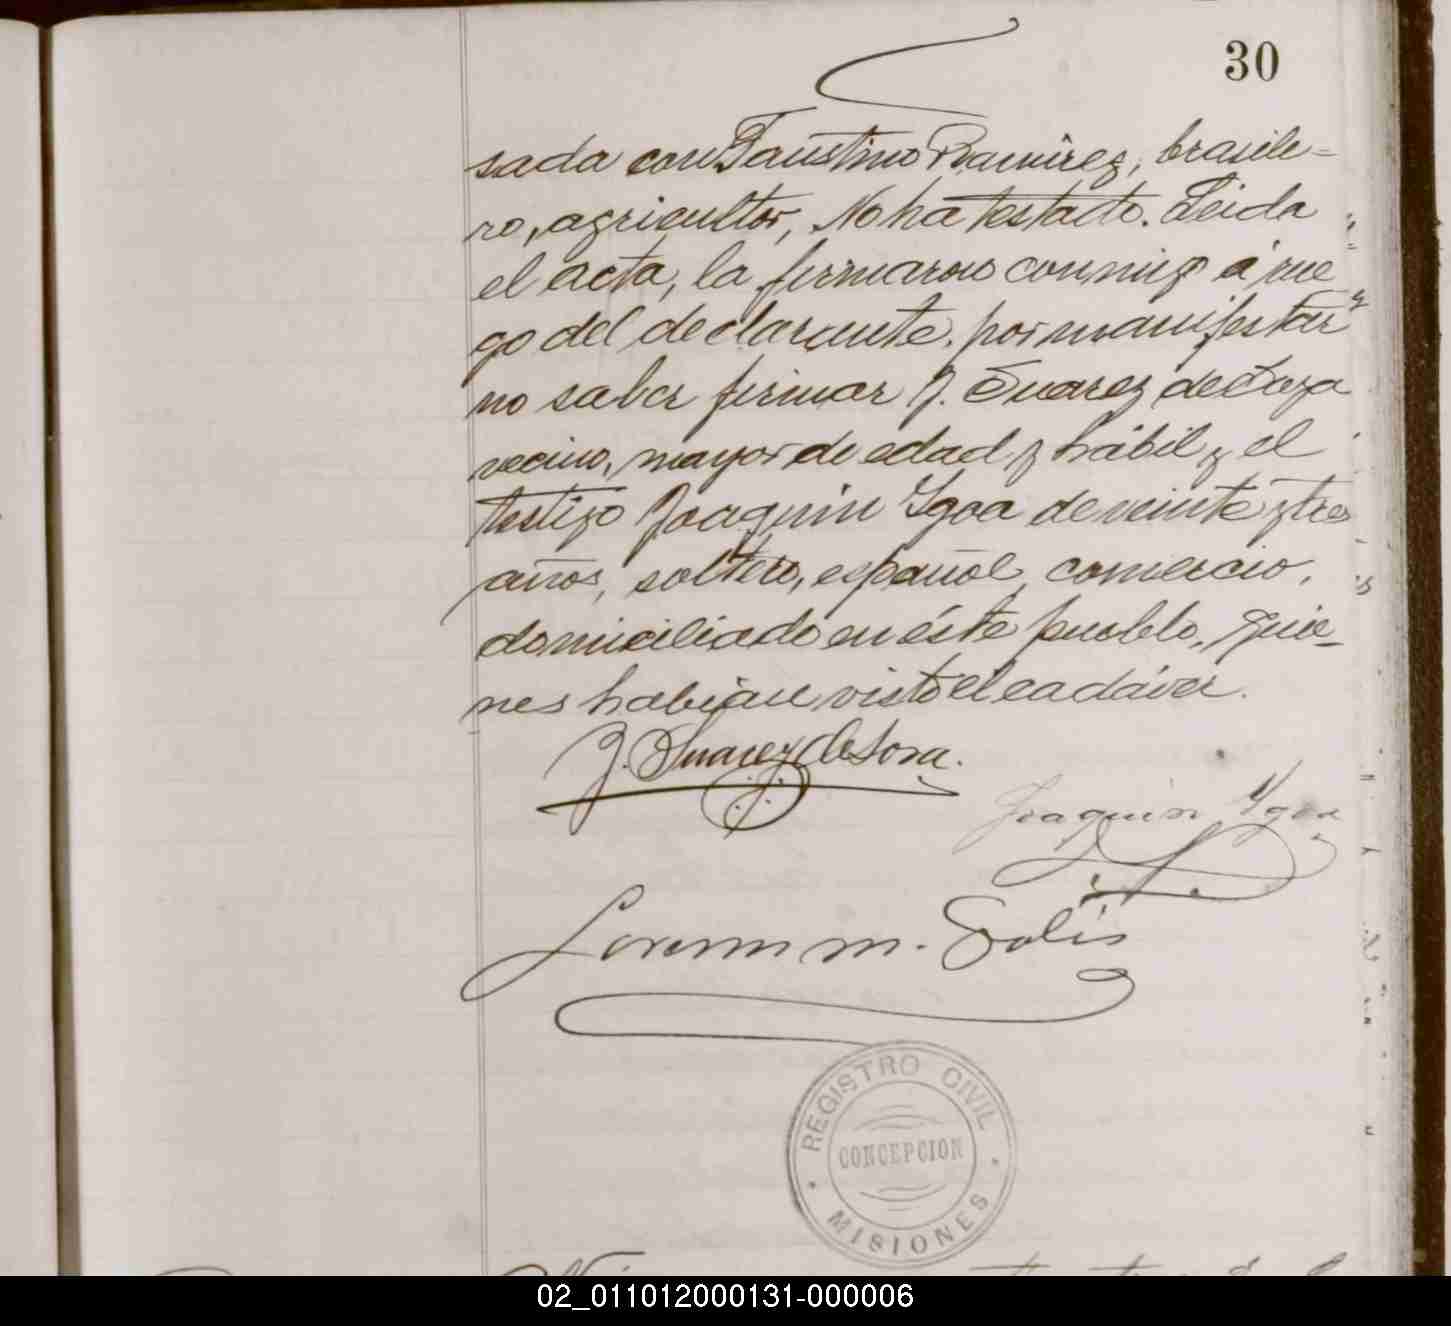 30
sada con Faustino Ramirez, brasile-
ro, agricultor, No ha testado. Leida
el acta, la firmaron conmigo á rue
go del declarante, por manifestar
no saber firmar J. Suarez de Loza
vecino, mayor de edad y hábil y el
testigo Joaquin Ygoa de veinte y tres
años, soltero, español, comercio,
domiciliado en éste pueblo, quie-
nes habian visto el cadáver.
J. Suarez de Loza.
Joaquin Ygoa
M. Solis
REGISTRO CIVIL
CONCEPCION
MISIONES
02_011012000131-000006